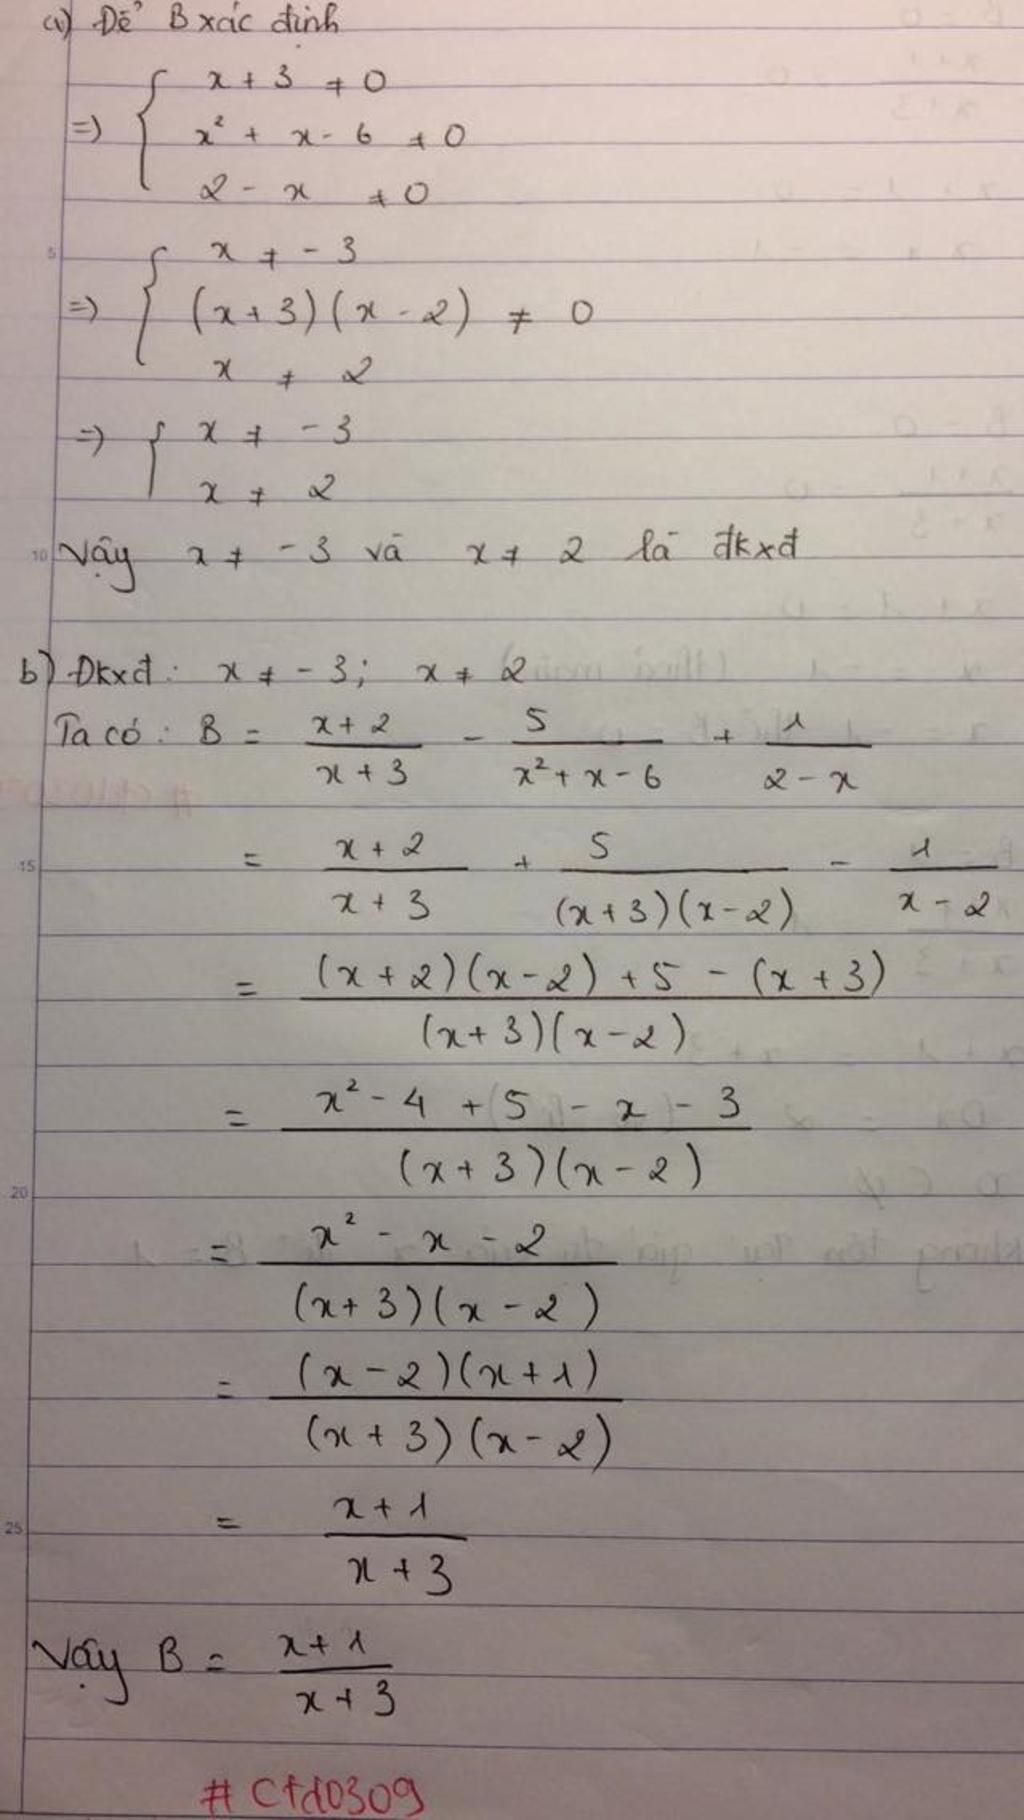 a) Để B xác định
=> { x + 3 ≠ 0
x² + x - 6 ≠ 0
2 - x ≠ 0
5
=> { x ≠ - 3
(x + 3)(x - 2) ≠ 0
x ≠ 2
=> { x ≠ - 3
x ≠ 2
10 Vậy x ≠ - 3 và x ≠ 2 là đkxđ
b) Đkxđ : x ≠ - 3 ; x ≠ 2
Ta có : B = (x + 2)/(x + 3) - 5/(x² + x - 6) + 1/(2 - x)
15 = (x + 2)/(x + 3) + 5/((x + 3)(x - 2)) - 1/(x - 2)
= ((x + 2)(x - 2) + 5 - (x + 3))/((x + 3)(x - 2))
= (x² - 4 + 5 - x - 3)/((x + 3)(x - 2))
20
= (x² - x - 2)/((x + 3)(x - 2))
= ((x - 2)(x + 1))/((x + 3)(x - 2))
25 = (x + 1)/(x + 3)
Vậy B = (x + 1)/(x + 3)
# Ctd0309